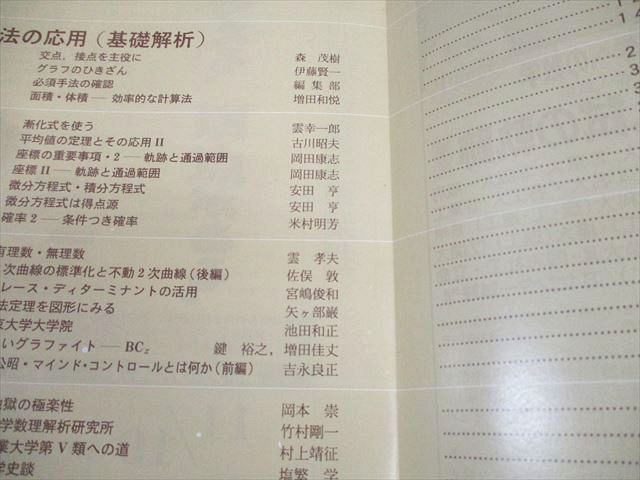 法の応用（基礎解析）
交点，接点を主役に　森　茂樹
グラフのひきざん　伊藤賢一
必須手法の確認　編集部
面積・体積――効率的な計算法　増田和悦
漸化式を使う　雲幸一郎
平均値の定理とその応用II　古川昭夫
座標の重要事項・2――軌跡と通過範囲　岡田康志
座標II――軌跡と通過範囲　岡田康志
微分方程式・積分方程式　安田　亨
微分方程式は得点源　安田　亨
確率2――条件つき確率　米村明芳
有理数・無理数　雲　孝夫
次曲線の標準化と不動2次曲線（後編）　佐俣　敦
レース・ディターミナントの活用　宮嶋俊和
法定理を図形にみる　矢ヶ部巌
京大学大学院　池田和正
いグラファイト――BCz　鍵　裕之，増田佳丈
公昭・マインド・コントロールとは何か（前編）　吉永良正
獄の極楽性　岡本　崇
学数理解析研究所　竹村剛一
業大学第V類への道　村上靖征
学史談　塩繁　学
1
1 4
2
3
3